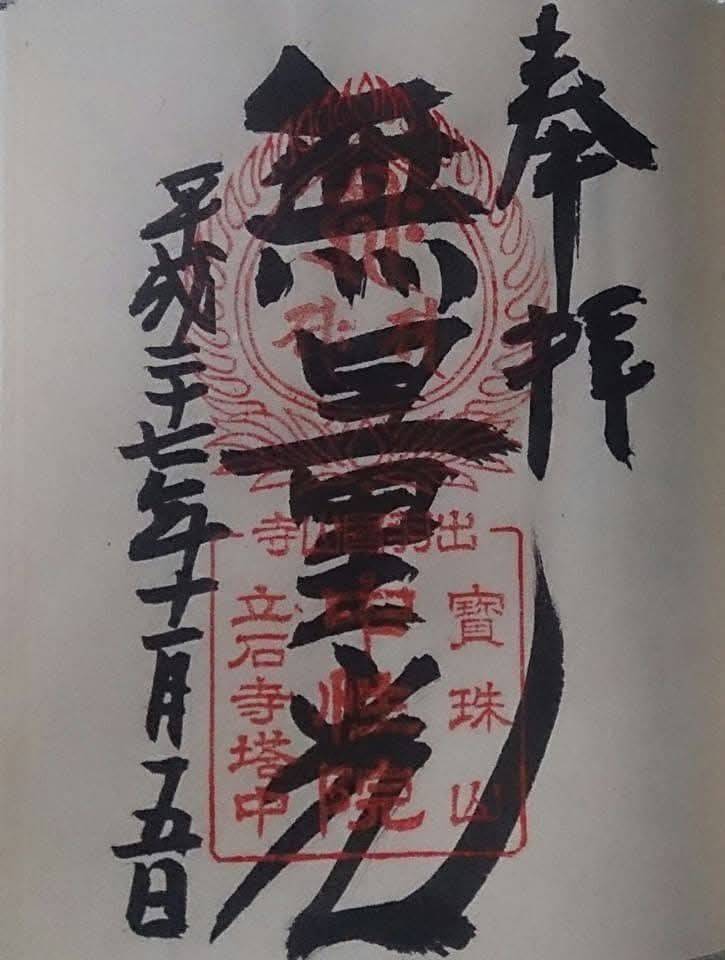 奉拝
無量光
平成二十七年十一月五日
出羽國山寺
寶珠山
中性院
立石寺塔中